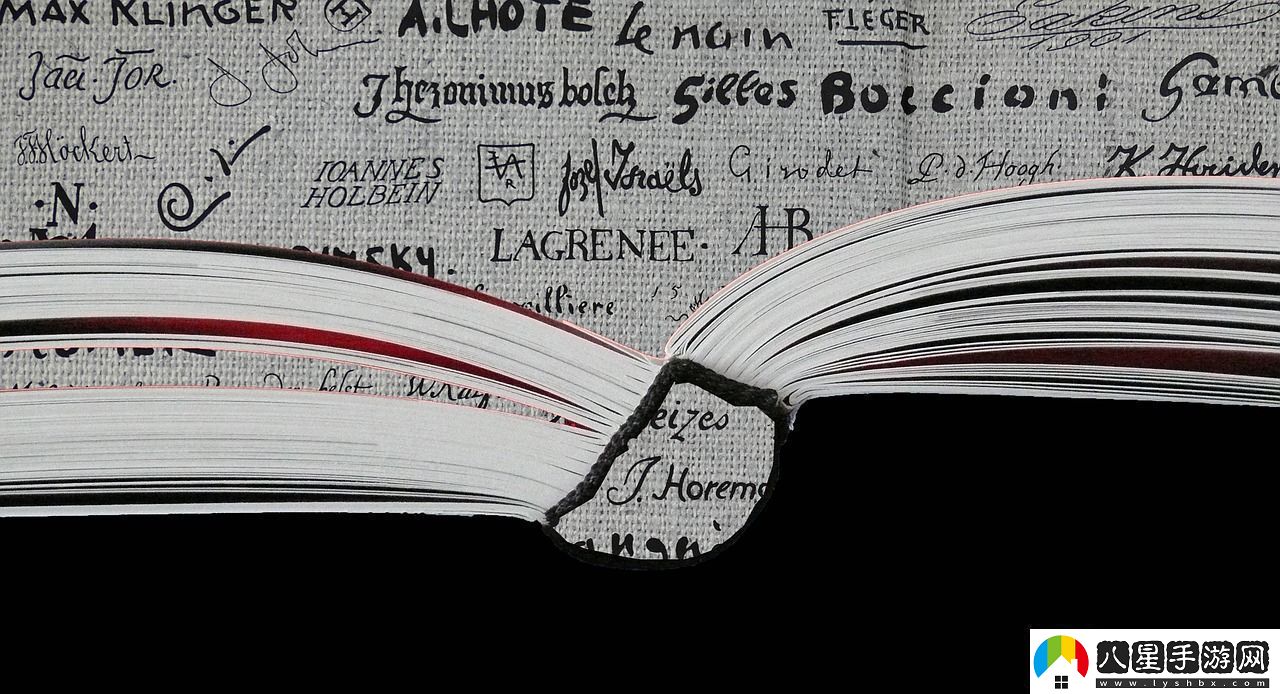 MAX KLINGER
A.LHOTE
Le nain
FLEGER
1901
Jau. JOR.
J. Jor
Jheronimus bosch
Gilles
Boccioni
Höckert
IOANNES
HOLBEIN
Jozef Israëls
Girodet
P. d. Hoogh
·N·
LAGRENEE·
AHB
NSKY.
illiere
15
der helst
eizes
J. Horem
八星手游网
www.lyshbx.com